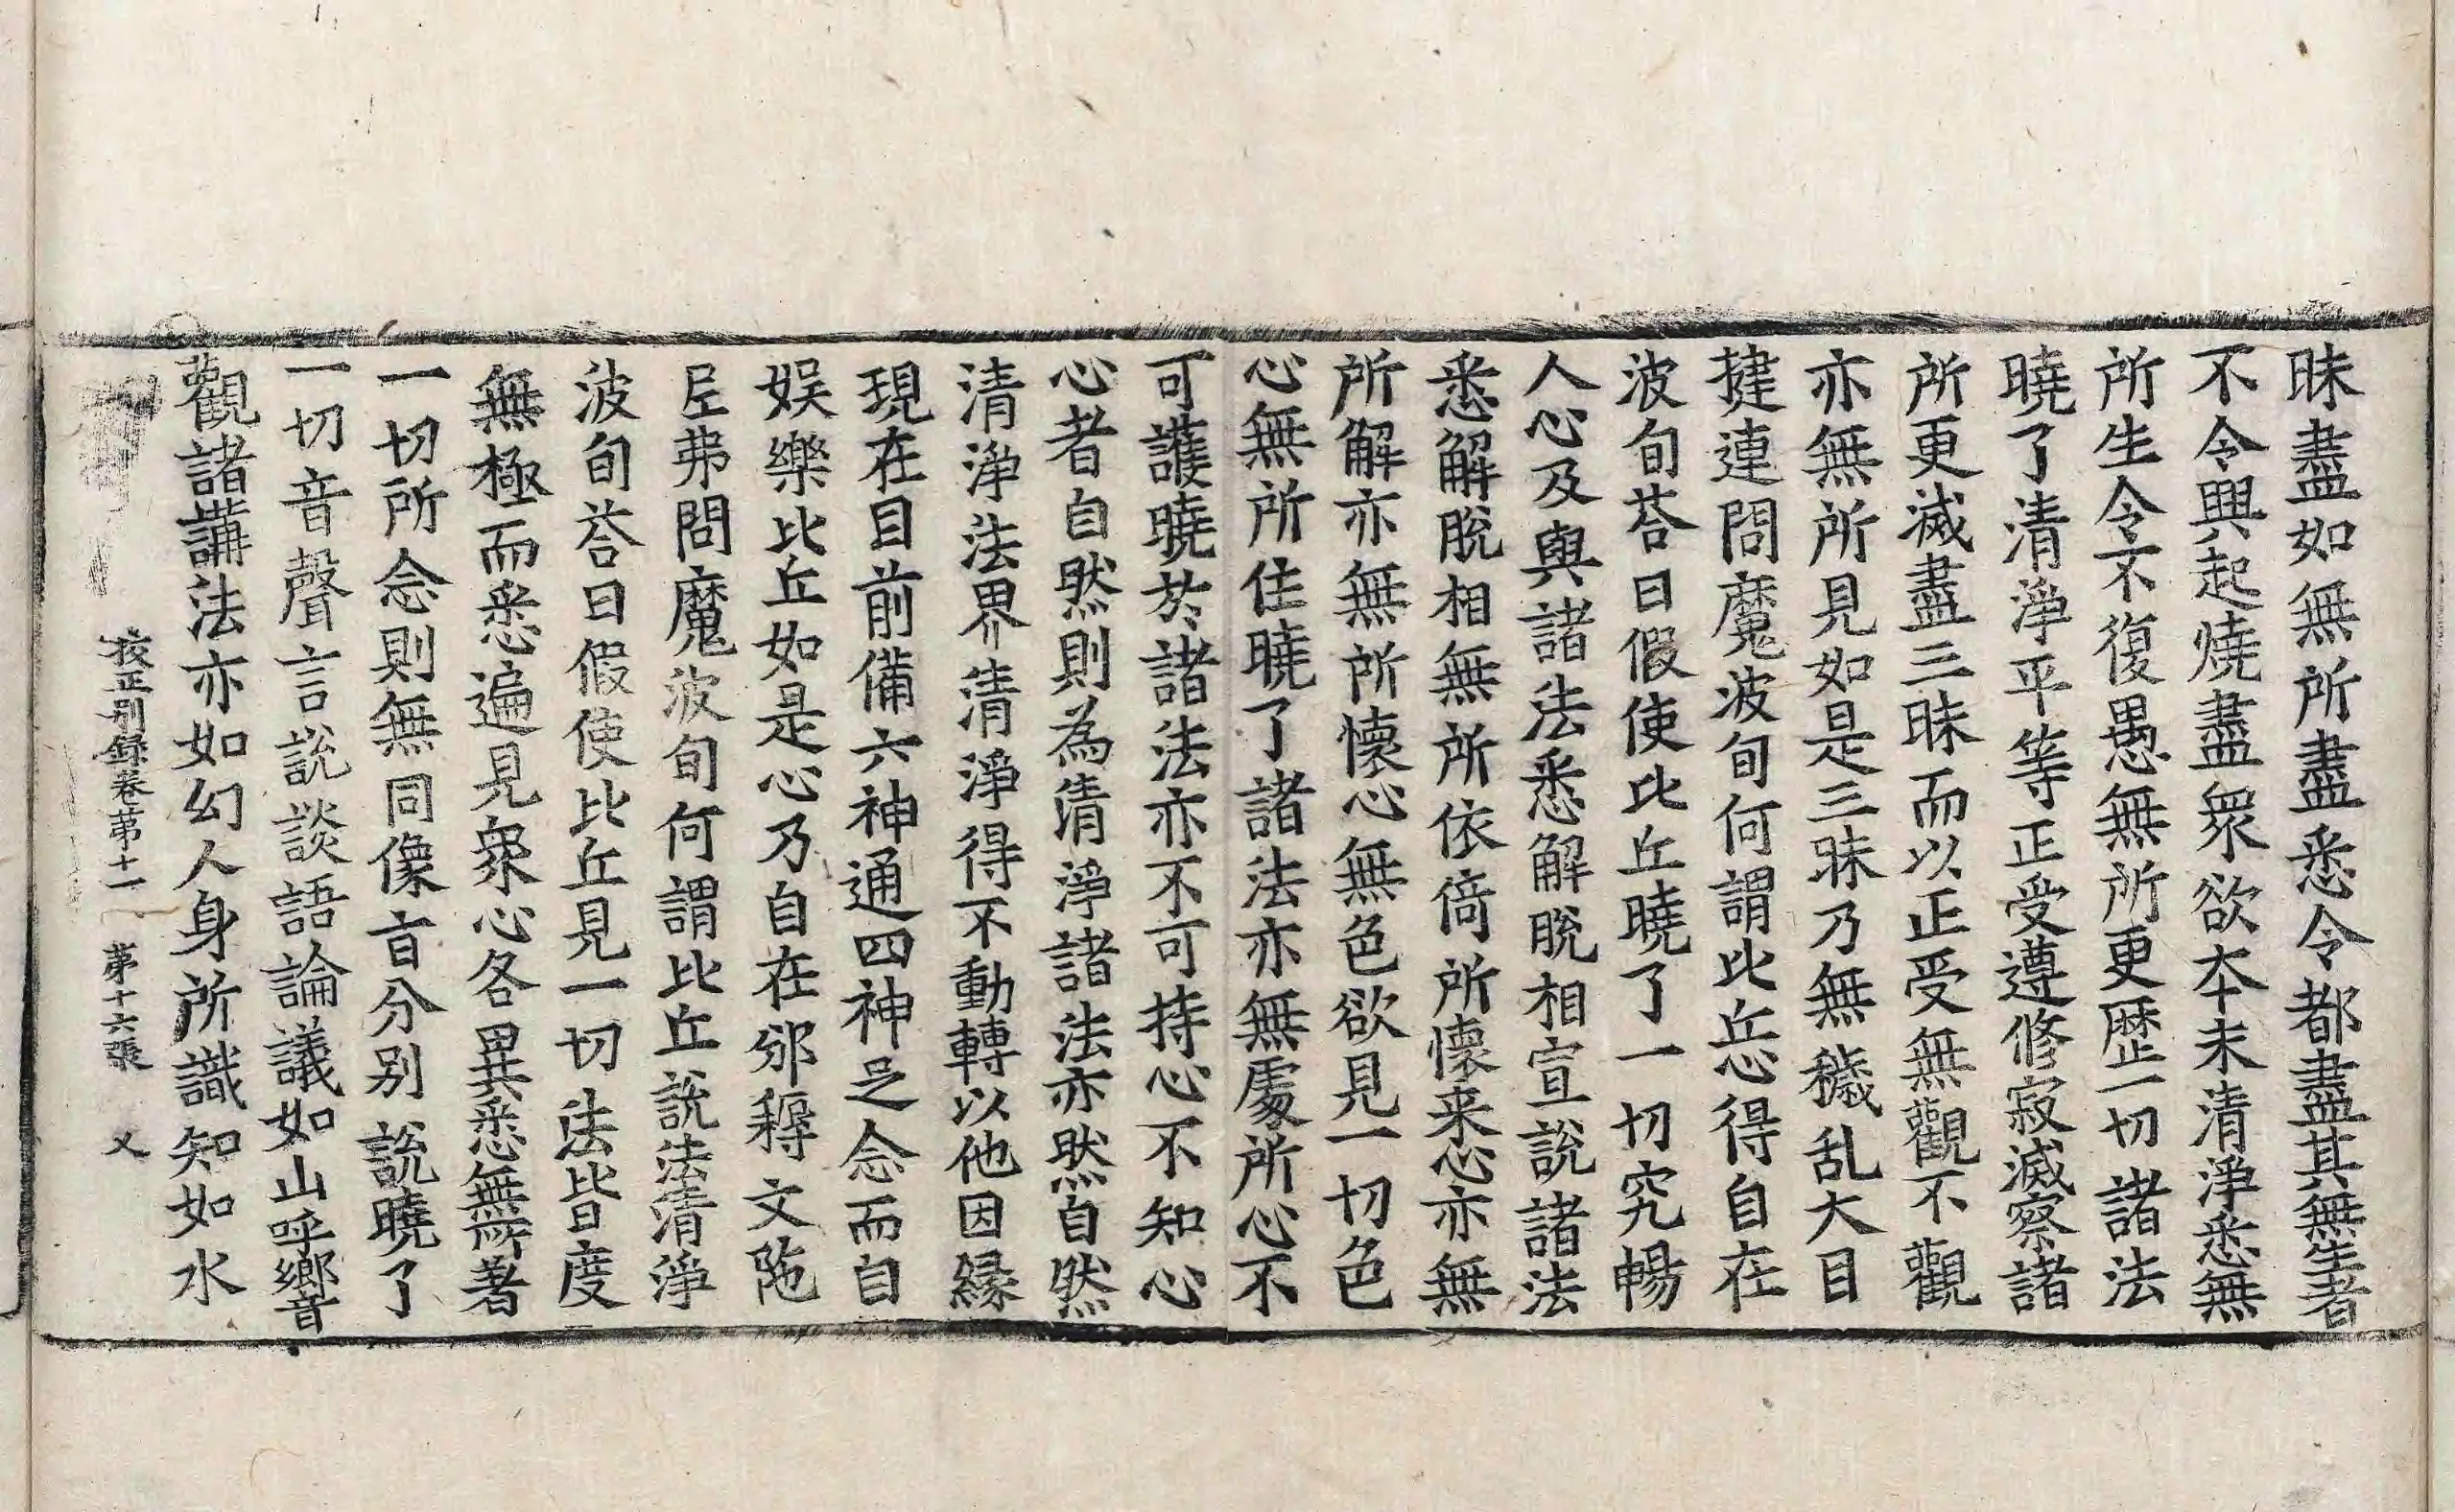 昧盡如無所盡悉令都盡其無生者
不令興起燒盡衆欲本末清淨悉無
所生令不復愚無所更歷一切諸法
曉了清淨平等正受遵修寂滅察諸
所更滅盡三昧而以正受無觀不觀
亦無所見如是三昧乃無穢乱大目
揵連問魔波旬何謂比丘心得自在
波旬荅曰假使比丘曉了一切究暢
人心及與諸法悉解脫相宣說諸法
悉解脫相無所依倚所懷来心亦無
所解亦無所懷心無色欲見一切色
心無所住曉了諸法亦無處所心不
可護曉於諸法亦不可持心不知心
心者自然則為清淨諸法亦然自然
清淨法界清淨得不動轉以他因緣
現在目前備六神通四神足念而自
娱樂比丘如是心乃自在邠耨文陁
尼弗問魔波旬何謂比丘說法清淨
波旬荅曰假使比丘見一切法皆度
無極而悉遍見衆心各異悉無所著
一切所念則無同像盲分别說曉了
一切音聲言說談語論議如山呼嚮音
觀諸講法亦如幻人身所識知如水
校正别録卷苐十一 苐十六張 㐅